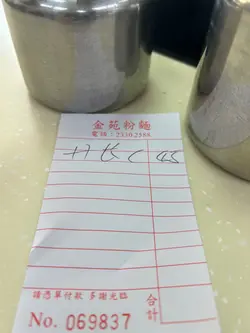 金苑粉麵
電話：2330 2588
C 45
請憑單付款 多謝光臨
合計
No. 069837